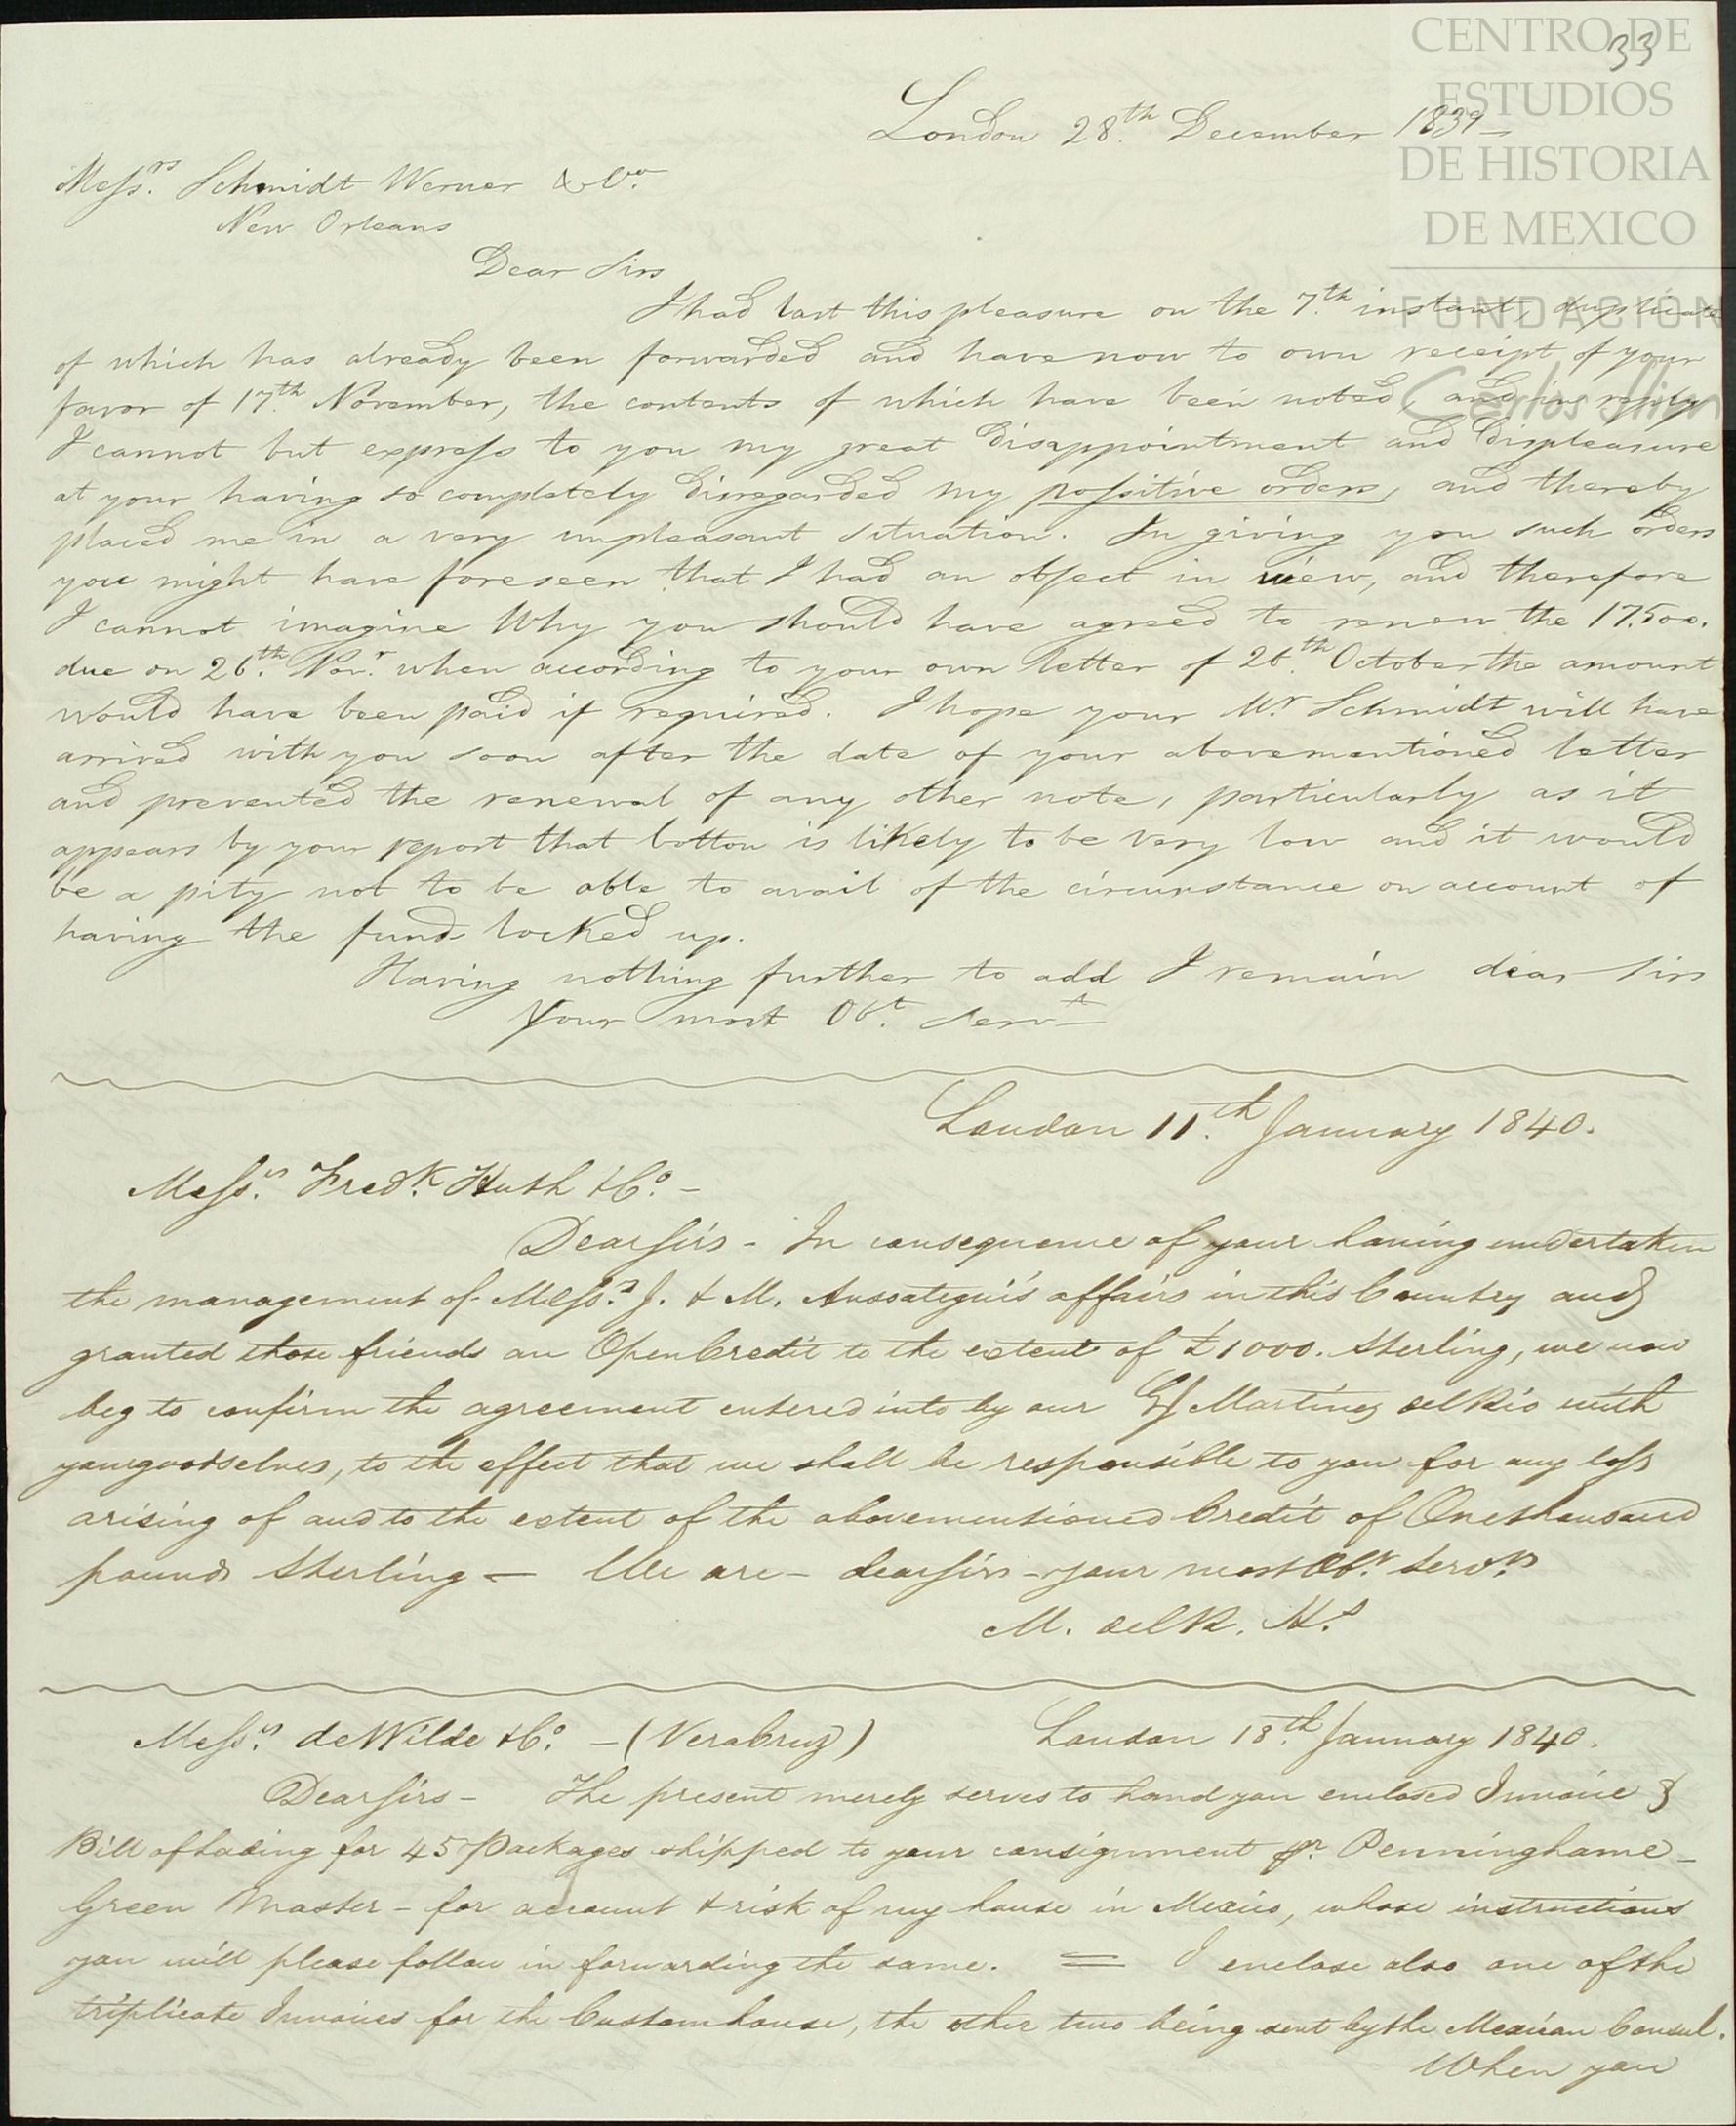 CENTRO DE
ESTUDIOS
DE HISTORIA
DE MEXICO
FUNDACIÓN
Carlos Slim
33
London 28.th December 1839
Messrs. Schmidt Werner & Co.
New Orleans
Dear Sirs
I had last this pleasure on the 7.th instant, duplicate
of which has already been forwarded and have now to own receipt of your
favor of 17.th November, the contents of which have been noted, and in reply
I cannot but express to you my great disappointment and displeasure
at your having so completely disregarded my possitive orders, and thereby
placed me in a very unpleasant situation. In giving you such orders
you might have foreseen that I had an object in view, and therefore
I cannot imagine Why you should have agreed to renew the 17.500.
due on 26.th Nov.r when according to your own letter of 26.th October the amount
would have been paid if required. I hope your Mr. Schmidt will have
arrived with you soon after the date of your abovementioned letter
and prevented the renewal of any other note, particularly as it
appears by your report that Cotton is likely to be very low and it would
be a pity not to be able to avail of the circumstance on account of
having the funds locked up.
Having nothing further to add I remain dear Sirs
Your most Obt. Servt
London 11.th January 1840.
Messrs. Fredk. Huth & Co. –
Dear Sirs – In consequence of your having undertaken
the management of Messrs. J. & M. Ansoategui's affairs in this Country and
granted those friends an Open Credit to the extent of £1000. Sterling, we now
beg to confirm the agreement entered into by our Martinez del Rio with
yourgoodselves, to the effect that we shall be responsible to you for any loss
arising of and to the extent of the abovementioned Credit of Onethousand
pounds Sterling – We are – dear sirs – your most Obt. Servts
M. del R. Hs.
Messrs. de Wilde & Co. – (Vera Cruz) London 18.th January 1840.
Dear Sirs – The present merely serves to hand you enclosed Invoice &
Bill of Lading for 45 Packages shipped to your consignment pr. Penninghame –
Green Master – for account & risk of my house in Mexico, whose instructions
you will please follow in forwarding the same. = I enclose also one of the
triplicate Invoices for the Customhouse, the other two being sent by the Mexican Consul.
When you